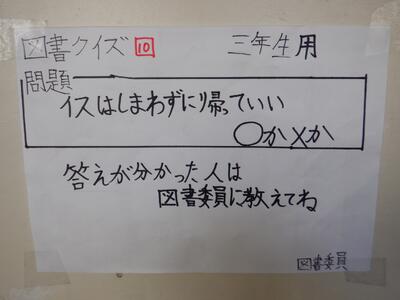 図書クイズ 10 三年生用
問題
イスはしまわずに帰っていい
○か×か
答えが分かった人は
図書委員に教えてね
図書委員